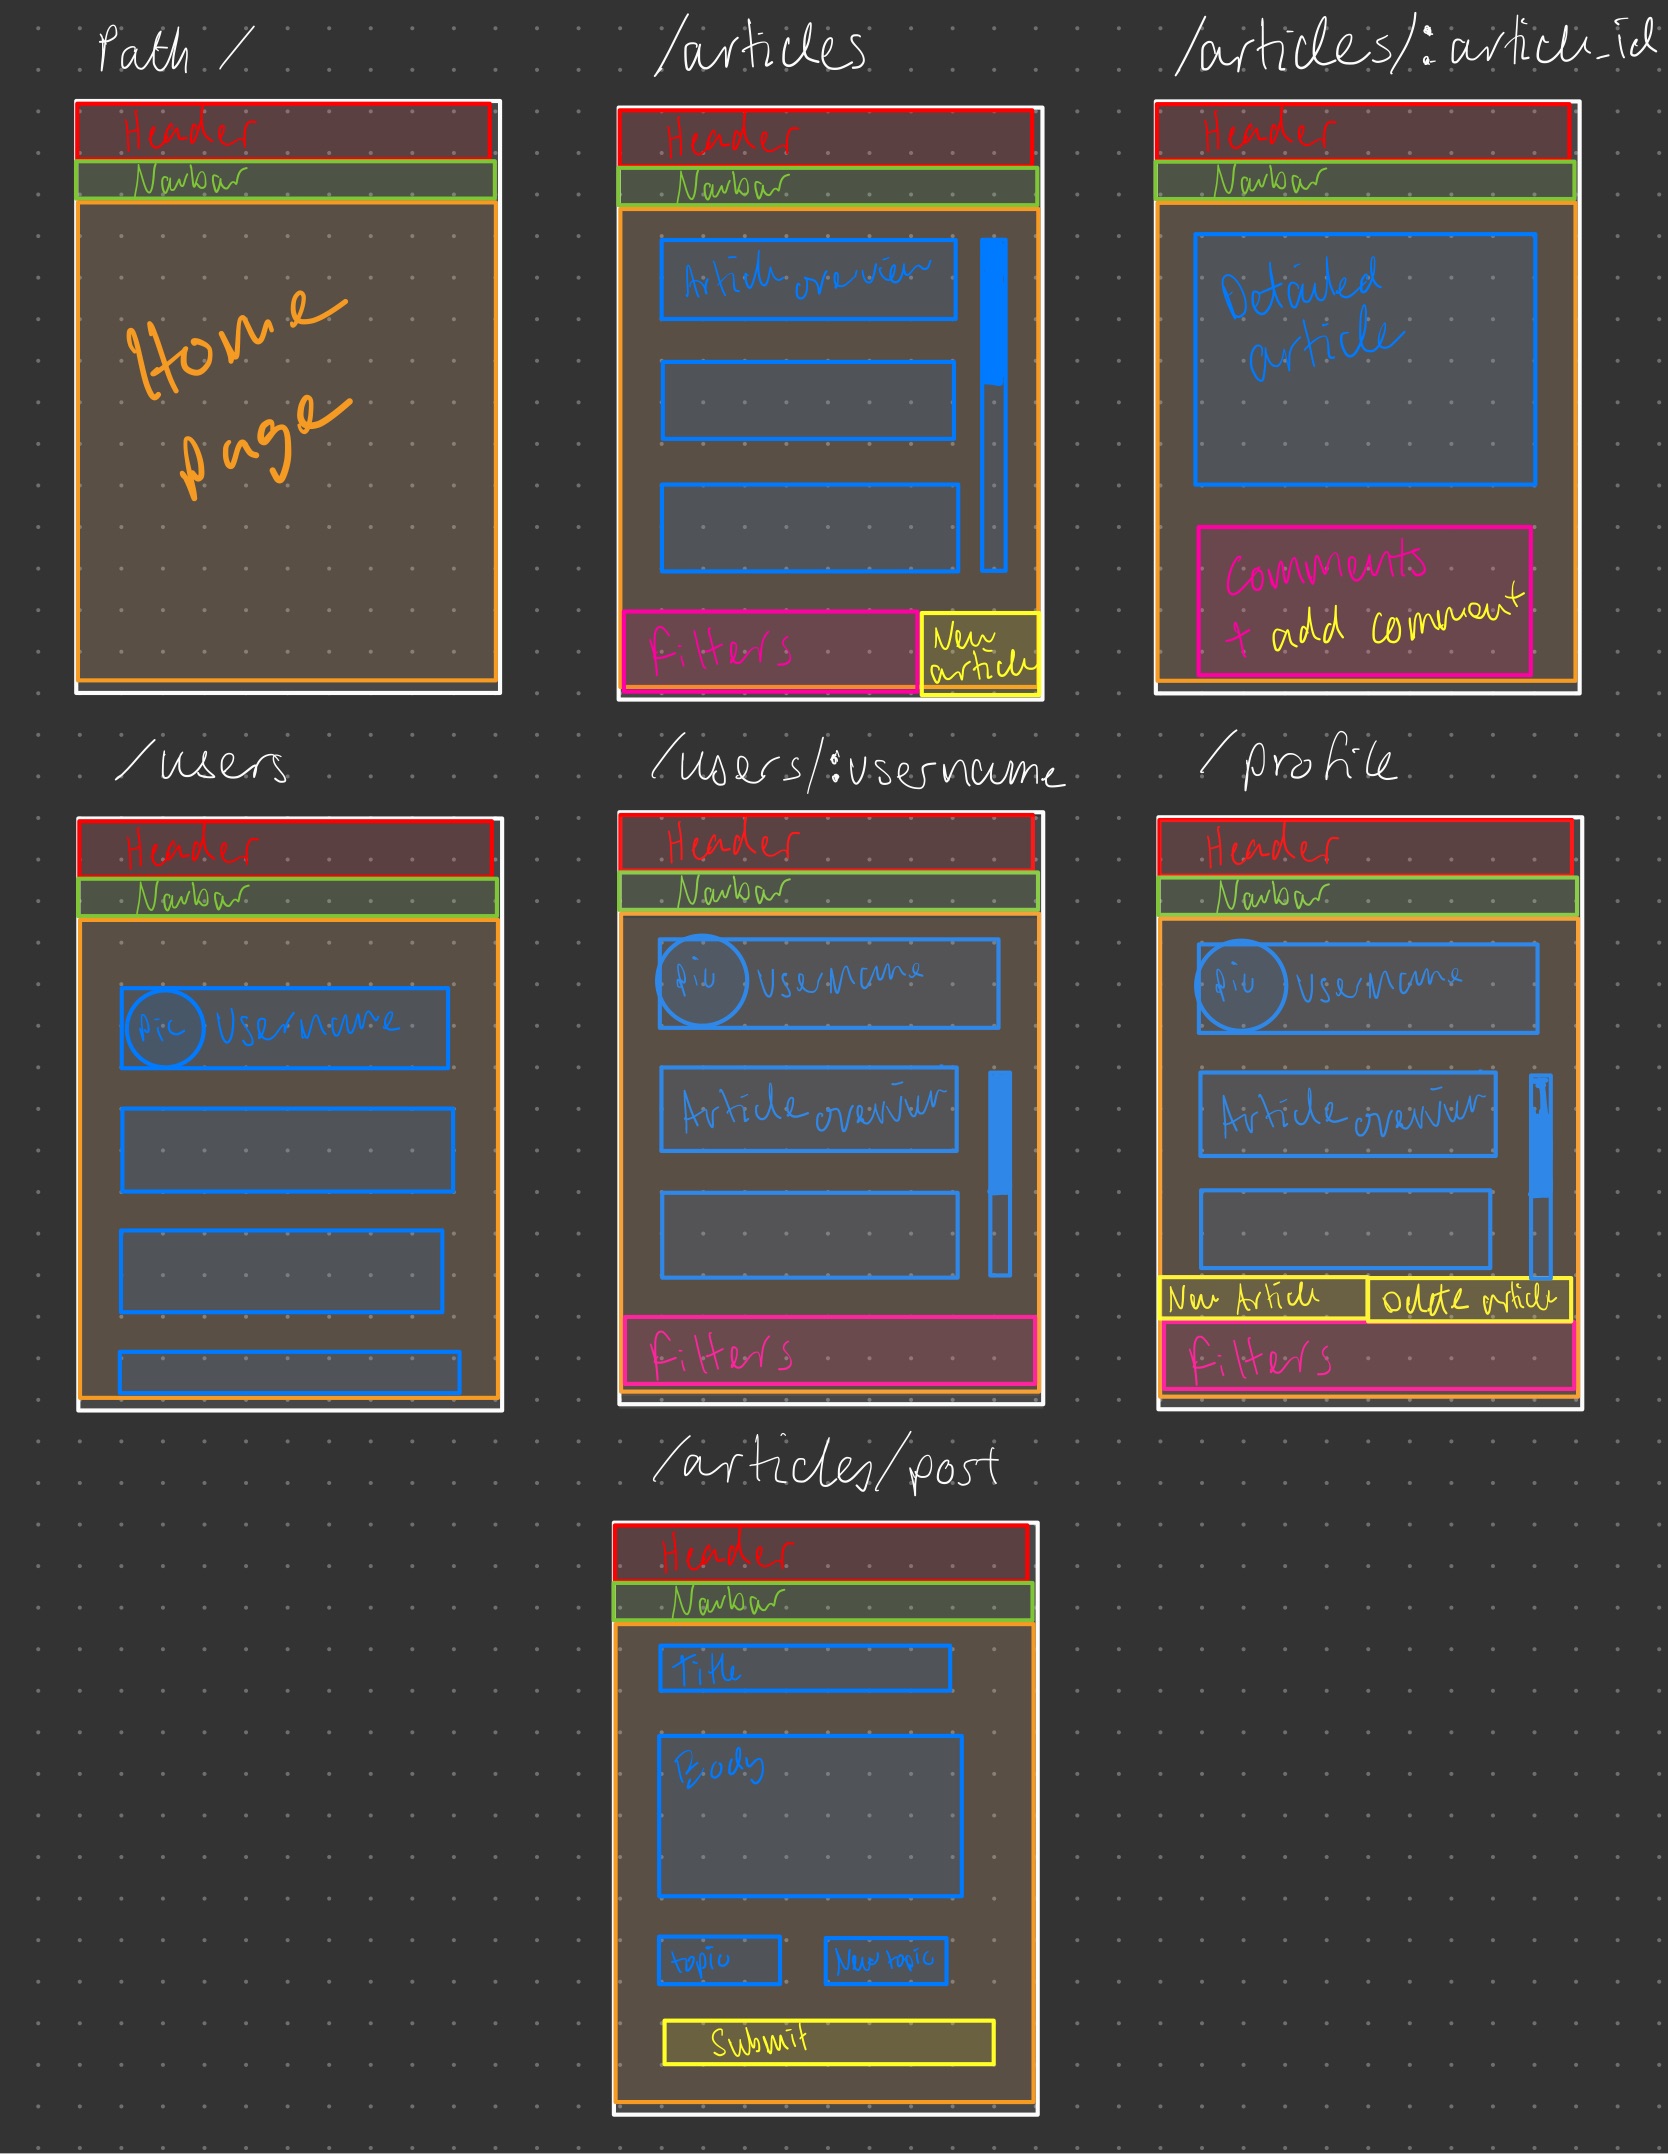 Path /
Header
Navbar
Home
page
/articles
Header
Navbar
Article overview
Filters
New
article
/articles/:article_id
Header
Navbar
Detailed
article
Comments
+ add comment
/users
Header
Navbar
Pic Username
/users/:username
Header
Navbar
Pic Username
Article overview
Filters
/profile
Header
Navbar
Pic Username
Article overview
New Article
Delete article
Filters
/articles/post
Header
Navbar
Title
Body
topic
New topic
Submit